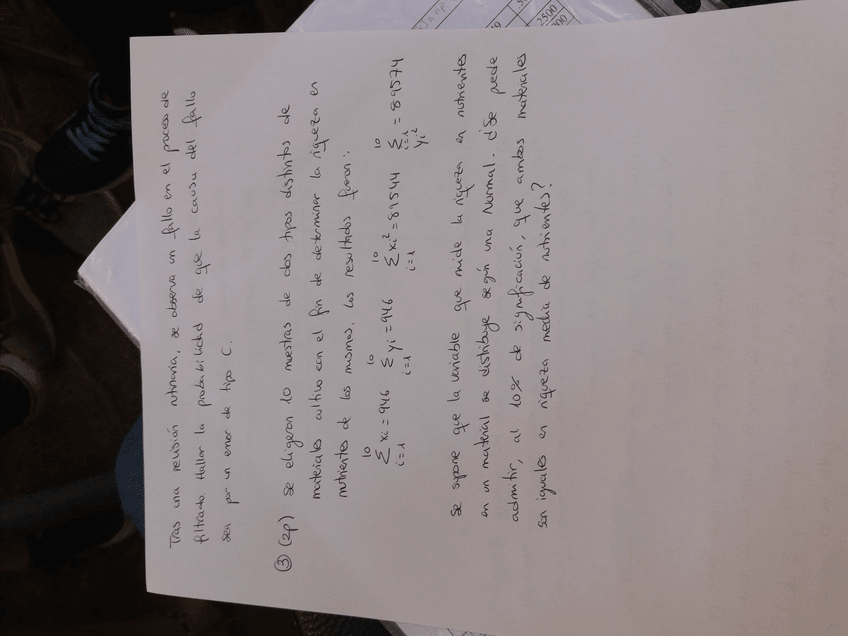 Tras una revisión rutinaria, se observa un fallo en el proceso de
filtrado. Hallar la probabilidad de que la causa del fallo
sea por un error de tipo C.
③ (2p) Se eligeron 10 muestras de dos tipos distintos de
materiales cultivo con el fin de determinar la riqueza en
nutrientes de los mismos. Los resultados fueron:
10 ∑ i=1 xi = 946 10 ∑ i=1 yi = 946 10 ∑ i=1 xi² = 89544 10 ∑ i=1 yi² = 89574
Se supone que la variable que mide la riqueza en nutrientes
en un material se distribuye según una Normal. ¿Se puede
admitir, al 10% de significación, que ambos materiales
son iguales en riqueza media de nutrientes?
2500